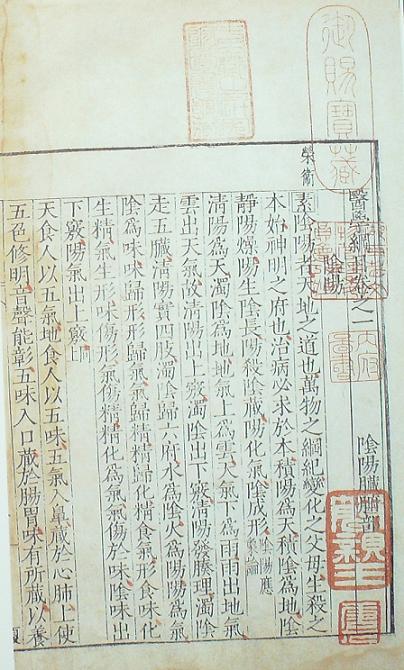 御賜寶藏
醫學綱目卷之一 陰陽臟腑部
陰陽
榮衛
素陰陽者天地之道也萬物之綱紀變化之父母生殺之
本始神明之府也治病必求於本積陽為天積陰為地陰
靜陽燥陽生陰長陽殺陰藏陽化氣陰成形陰陽應象論
清陽為天濁陰為地地氣上為雲天氣下為雨雨出地氣
雲出天氣故清陽出上竅濁陰出下竅清陽發腠理濁陰
走五臟清陽實四肢濁陰歸六府水為陰火為陽陽為氣
陰為味味歸形形歸氣氣歸精精歸化精食氣形食味化
生精氣生形味傷形氣傷精精化為氣氣傷於味陰味出
下竅陽氣出上竅上
天食人以五氣地食人以五味五氣入鼻藏於心肺上使
五色修明音聲能彰五味入口藏於腸胃味有所藏以養